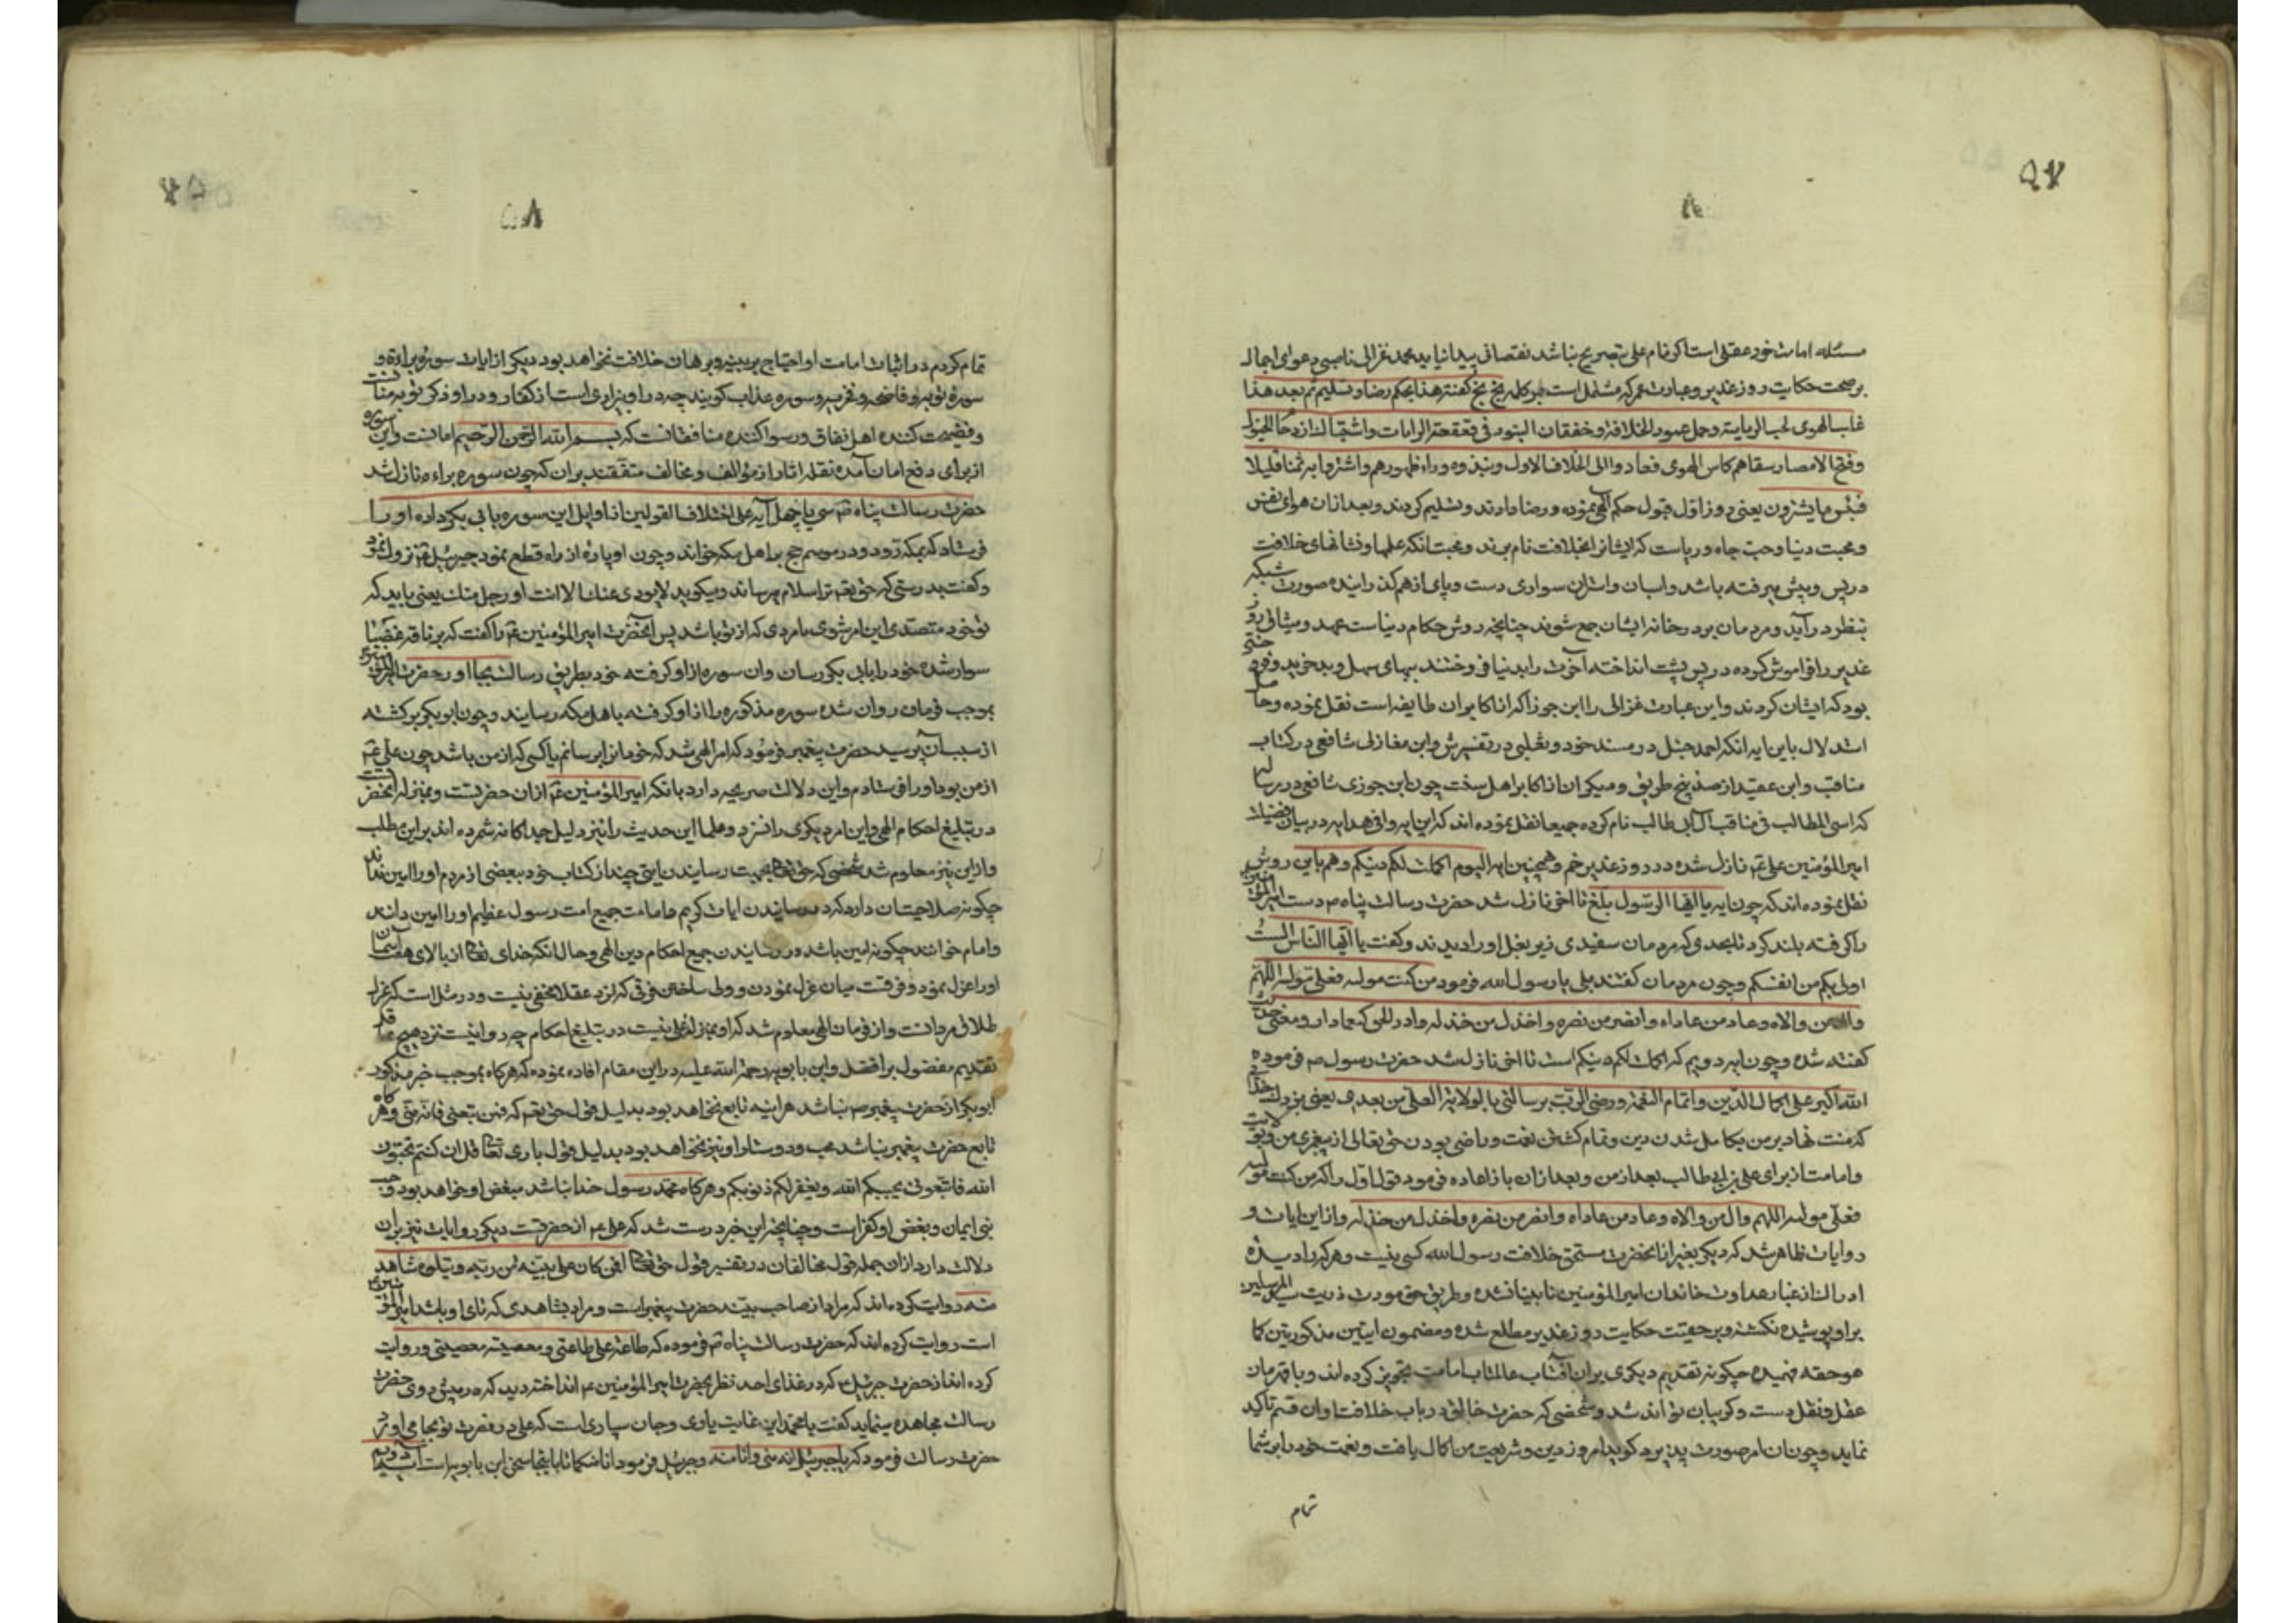 ۵۷
۸
مسئله امامت خود عقلی است اگر نام علی بتصریح نباشد نقصانی پیدا نیاید محمد غزالی ناصبی دعوای اجماع
بر صحت حکایت روز غدیر و عبارت عمر که مشتمل است بر کلمه بخ بخ گفته هذا بحکم رضا و تسلیم ثم بعد هذا
غلب الهوی لحب الریاسة و حمل عمود الخلافة و خفقان البنود فی قعقعة الرایات و اشتباک ازدحام الخیول
و فتح الامصار سقاهم کاس الهوی فعادوا الی الخلاف الاول و نبذوه وراء ظهورهم و اشتروا به ثمنا قلیلا
فبئس ما یشترون یعنی روز اول قبول حکم الهی نموده و رضا دادند و تسلیم کردند و بعد ازان هوای نفس
و محبت دنیا و حب جاه و ریاست که ایشانرا بخلافت نام برند و محبت انکه علمها و نشانهای خلافت
در پس و پیش میرفته باشد و اسبان و استران سواری دست و پای از هم گذرانیده صورت شبکه
بنظر درآید و مردمان بر در خانه ایشان جمع شوند چنانچه روش حکام دنیاست عهد و میثاق روز
غدیر را فراموش کرده در پس پشت انداخته آخرت را بدنیا فروختند ببهای سهل و بد خرید و فروختنی
بود که ایشان کردند و این عبارت غزالی را ابن جوز که از اکابر ان طایفه است نقل نموده و حاصل
استدلال باین ایه انکه احمد حنبل در مسند خود و ثعلبی در تفسیرش و ابن مغازلی شافعی در کتاب
مناقب و ابن عقده از صد و پنج طریق و میکر ان از اکابر اهل سنت چون ابن جوزی شافعی در رساله
که اسی المطالب فی مناقب آل ابی طالب نام کرده جمیعا نقل نموده اند که این ایه وافی هدایه در بیان فضیلت
امیر المؤمنین علی ع نازل شده در روز غدیر خم و همچنین ایه الیوم اکملت لکم دینکم و هم باین روش
نقل نموده اند که چون ایه یا ایها الرسول بلغ تا اخر نازل شد حضرت رسالت پناه ص دست امیر المؤمنین
را گرفته بلند کرد تا بحدی که مردمان سفیدی زیر بغل او را دیدند و گفت یا ایها الناس الست
اولی بکم من انفسکم و چون مردمان گفتند بلی یا رسول الله فرمود من کنت مولاه فعلی مولاه اللهم
وال من والاه و عاد من عاداه و انصر من نصره و اخذل من خذله و ادر الحق کیما دار و معنی حدیث
گفته شده و چون ایه دویم که اکملت لکم دینکم است تا اخر نازل شد حضرت رسول ص فرموده
الله اکبر علی اکمال الدین و اتمام النعمة و رضی الرب برسالتی بالولایة لعلی من بعدی یعنی بزرگست خدای
که منت نهاد بر من بکامل شدن دین و تمام گشتن نعمت و راضی بودن حق تعالی از پیغمبری من و بولایت
و امامت از برای علی بن ابی طالب بعد از من و بعد ازان باز اعاده فرمود قول اول را که من کنت مولاه
فعلی مولاه اللهم وال من والاه و عاد من عاداه و انصر من نصره و اخذل من خذله و از این ایات و
روایات ظاهر شد که دیگر بغیر از انحضرت مستحق خلافت رسول الله کسی نیست و هر که را دیده
ادراک از غبار عداوت خاندان امیر المؤمنین نابینا نشده و طریق حق مودت ذریت سید المرسلین
بر او پوشیده نگشته و بر حقیقت حکایت روز غدیر مطلع شده و مضمون ایتین مذکورتین کما
هو حقه فهمیده چگونه تقدیم دیگری بر ان افتاب عالمتاب امامت تجویز کرده اند و بافرمان
عقل و نقل دست و گریبان تواند شد و شخصی که حضرت خالق در باب خلافت او ان قسم تاکید
نماید و چون ان امر صورت پذیرد گوید امروز دین و شریعت من کمال یافت و نعمت خود را بر شما
تمام
۵۸
تمام کردم در اثبات امامت او احتیاج بر بینه و برهان خلافت نخواهد بود دیگر از ایات سوره براءة و
سوره توبه و فاضحه و مخزیه و سوره عذاب گویند چه در او بیزاری است از کفار و در او ذکر توبه منافقانست
و فضیحت کننده اهل نفاق و رسوا کننده منافقانست که بسم الله الرحمن الرحیم امانست و این سوره
از برای دفع امان آمده نقله اثار از مؤالف و مخالف متفقند بر ان که چون سوره براءه نازل شد
حضرت رسالت پناه ص سی یا چهل آیه علی اختلاف القولین از اوایل این سوره بابی بکر داده او را
فرستاد که بمکه رود و در موسم حج بر اهل مکه خواند و چون او پاره از راه قطع نمود جبرئیل ع نزول نمود
و گفت بدرستی که حق تعالی ترا سلام میرساند و میگوید لا یودی عنک الا انت او رجل منک یعنی باید که
تو خود متصدی این امر شوی یا مردی که از تو باشد پس انحضرت امیر المؤمنین ع را گفت که بر ناقه غضبا
سوار شده خود را بابی بکر رسان وان سوره از او گرفته خود بطریق رسالت بجا اور حضرت امیر المؤمنین
بموجب فرمان روان شده سوره مذکوره را از او گرفته باهل مکه رسانید و چون ابوبکر برگشته
از سبب آن پرسید حضرت پیغمبر فرمود که امر الهی شد که خود انرا برسانم یا کسی که از من باشد چون علی ع
از من بود او را فرستادم و این دلالت صریحه دارد بانکه امیر المؤمنین ع ازان حضرتست و بمنزله انحضرتست
در تبلیغ احکام الهی و این امر دیگری را نسزد و علما این حدیث را نیز دلیل جداگانه شمرده اند بر این مطلب
و از این نیز معلوم شد شخصی که حق تعالی بجهت رسانیدن ایتی چند از کتاب خود ببعضی از مردم او را امین نداند
چگونه صلاحیت ان دارد که در رسانیدن ایات کریم و امامت جمیع امت رسول عظیم او را امین دانند
و امام خوانند چگونه امین باشد در رسانیدن جمیع احکام دین الهی و حال انکه خدای تعالی از بالای هفت آسمان
او را عزل نمود و فرقست میان عزل نمودن و ولی ساختن فرقی که نزد عقلا مخفی نیست و در مثل است که عزل
طلاق مردانست و از فرمان الهی معلوم شد که او بمنزله علی نیست در تبلیغ احکام چه روا نیست نزد هیچ عاقل
تقدیم مفضول بر افضل و ابن بابویه رحمة الله علیه در این مقام افاده نموده که هرگاه بموجب خبر مذکور
ابوبکر از حضرت پیغمبر ص نباشد هراینه تابع نخواهد بود بدلیل قول حق تعالی که فمن تبعنی فانه منی و هرگاه
تابع حضرت پیغمبر نباشد محب و دوستار او نیز نخواهد بود بدلیل قول باری تعالی قل ان کنتم تحبون
الله فاتبعونی یحببکم الله و یغفر لکم ذنوبکم و هرگاه محب رسول خدا نباشد مبغض او خواهد بود و حب
نبی ایمان و بغض او کفر است و چنانچه این خبر درست شد که علی ع از انحضرتست دیگر روایات نیز بران
دلالت دارد ازان جمله قول مخالفان در تفسیر قول حق تعالی افمن کان علی بینة من ربه و یتلوه شاهد
منه روایت کرده اند که مراد از صاحب بینه حضرت پیغمبر است و مراد بشاهدی که تالی او باشد امیر المؤمنین ع
است روایت کرده اند که حضرت رسالت پناه ص فرموده که طاعة علی طاعتی و معصیته معصیتی و روایت
کرده اند از حضرت جبرئیل ع که در غذای احد نظر بحضرت امیر المؤمنین ع انداخته دید که در پیش روی حضرت
رسالت مجاهده مینماید گفت یا محمد این غایت یاری و جان سپاری است که علی در نصرت تو بجا می اورد
حضرت رسالت فرمود که یا جبرئیل انه منی و انا منه و جبرئیل فرمود انا منکما تا باینجا سخن ابن بابویه است